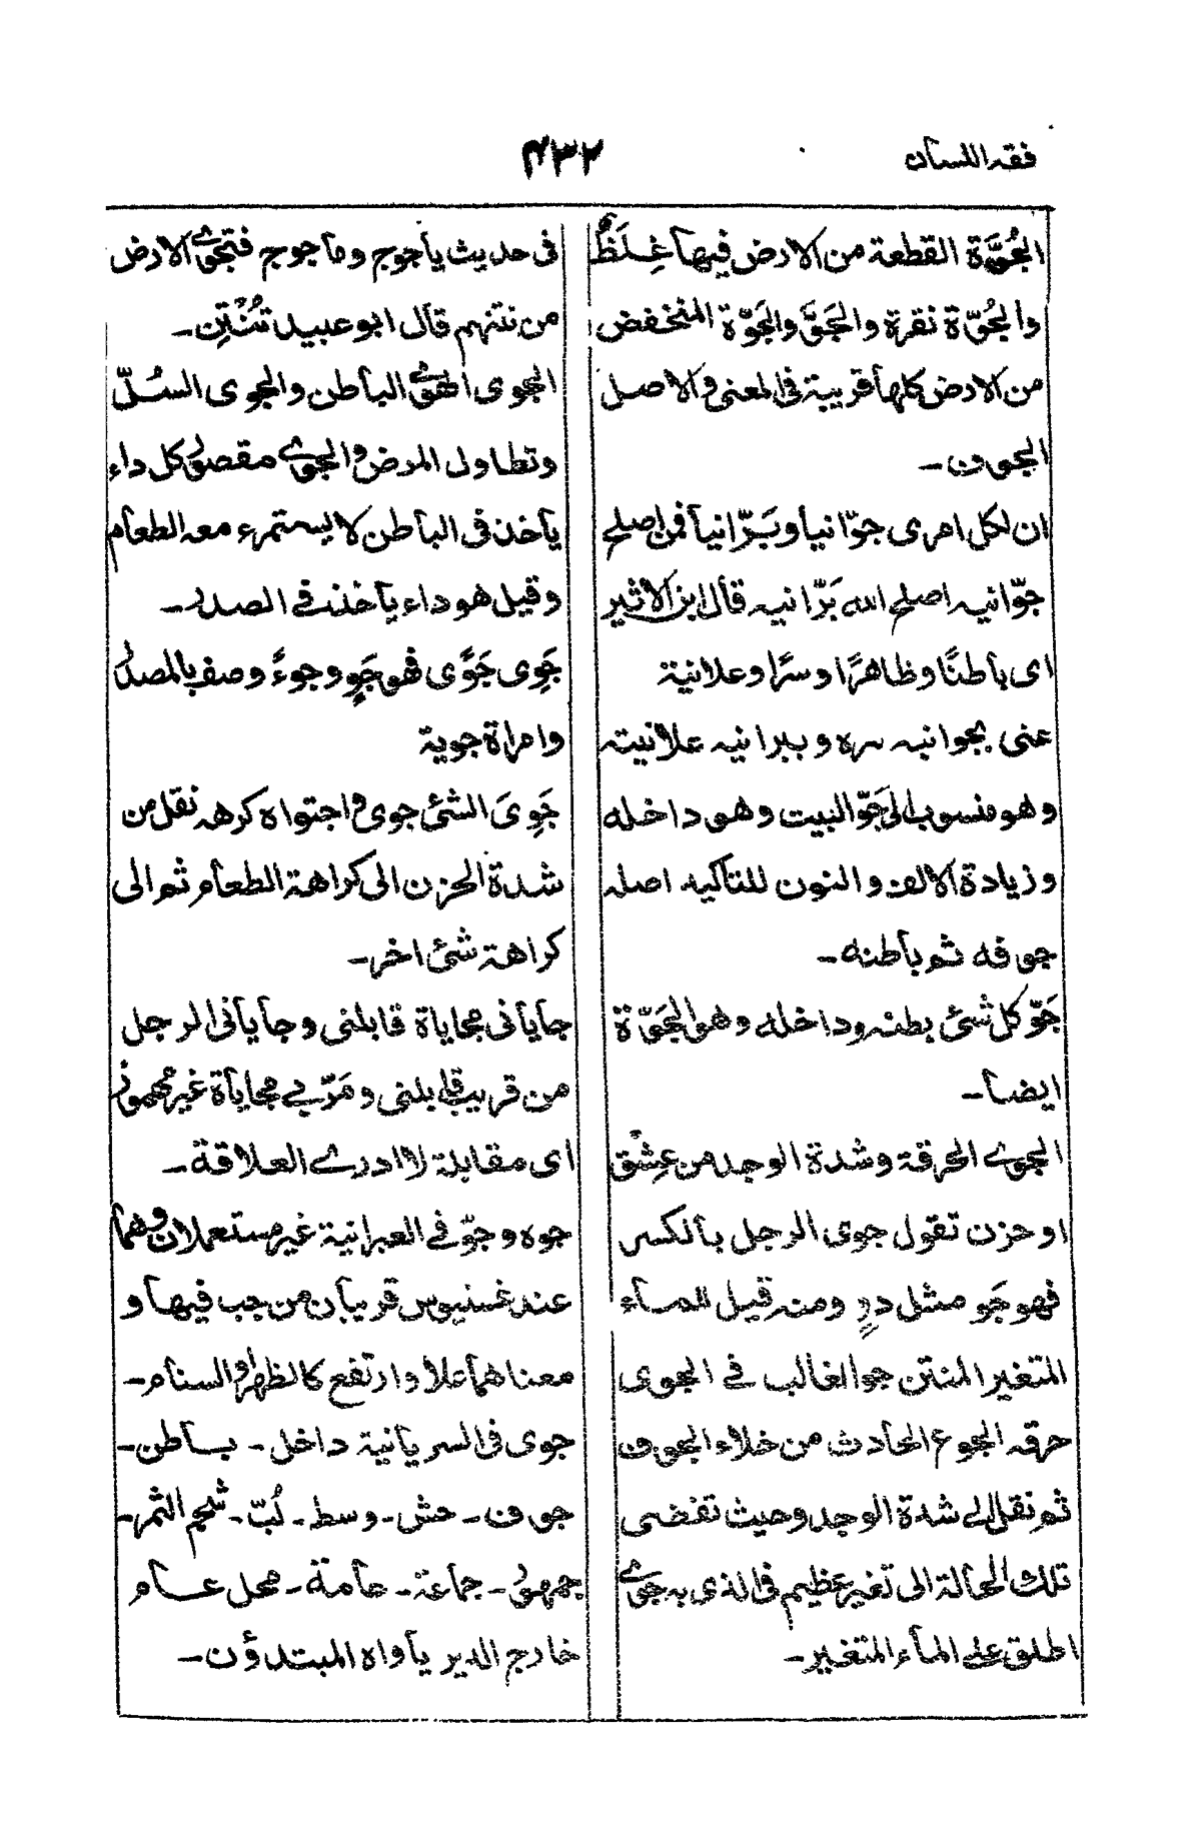 فقه اللسان
۴۳۲
الجُوَّة القطعة من الارض فيها غِلَظٌ
والجُوّة نقرة والجَوّ والجَوّة المنخفض
من الارض كلها قريبة فى المعنى والاصل
الجوف ـ
ان لكل امرى جوّانيا وبَرّانيا فمن اصلح
جوّانيه اصلح الله بَرّانيه قال ابن الاثير
اى باطنًا وظاهرًا وسرًا وعلانية
عنى بجوانيه سره وببرانيه علانيته
وهو منسوب الى جَوّ البيت وهو داخله
وزيادة الالف والنون للتاكيد اصله
جوفه ثم باطنه ـ
جَوّ كل شئ بطنه وداخله وهو الجَوّة
ايضا ـ
الجوے الحرقة وشدة الوجد من عِشق
او حزن تقول جوى الرجل بالكسر
فهو جَوٍ مثل دوٍ ومنه قيل للماء
المتغير المنتن جو الغالب فے الجوى
حرقه الجوع الحادث من خلاء الجوف
ثم نقل الے شدة الوجد وحيث تفضى
تلك الحالة الى تغير عظيم فى الذى به جوے
اطلق على الماء المتغير ـ
فى حديث ياجوج وماجوج فتجوے الارض
من نتنهم قال ابو عبيد تُنْتِن ـ
الجوى الهوے الباطن والجوى السُلّ
وتطاول المرض والجوے مقصور كل داء
ياخذ فى الباطن لا يستمرء معه الطعام
وقيل هو داء ياخذ فے الصدر ـ
جَوِى جَوًى فهو جَوٍ وجوىً وصف بالمصدر
وامراة جوية
جَوِىَ الشئ جوى واجتواه كرهه نقل من
شدة الحزن الى كراهة الطعام ثم الى
كراهة شئ اخر ـ
جايانى مجاياة قابلنى وجايانى الرجل
من قريب قابلنى ومَرّ بے مجاياة غير مهموز
اى مقابلة لا ادرے العلاقة ـ
جوه وجوّ فے العبرانية غير مستعملان وهما
عند غسنيوس قريبان من جب فيها و
معناهما علا وارتفع كالظهر والسنام ـ
جوى فى السريانية داخل ـ باطن ـ
جوف ـ حش ـ وسط ـ لُبّ ـ شحم الثمر ـ
جمهور ـ جماعة ـ عامة ـ محل عام
خارج الدير ياواه المبتدؤن ـ